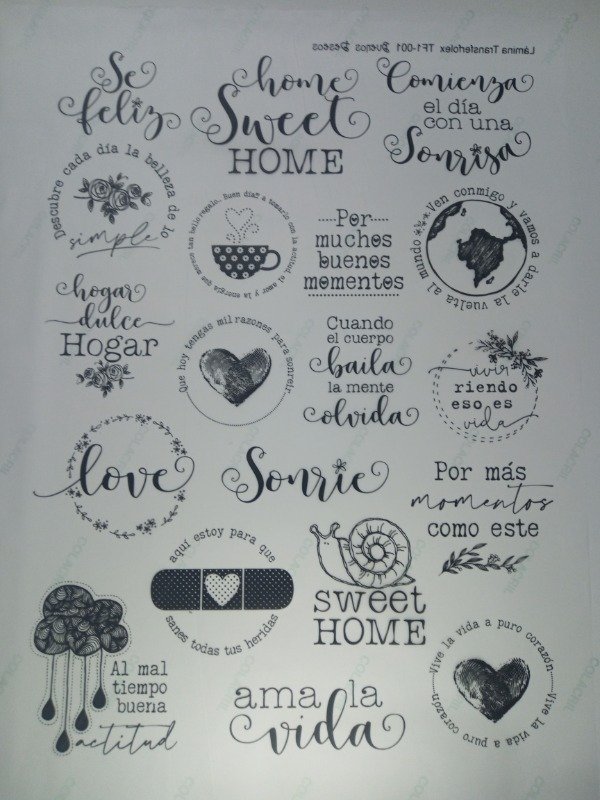 Lámina Transferfolex TF1-001 Buenos Deseos
Se
feliz
home
Sweet
HOME
Comienza
el día
con una
Sonrisa
Descubre cada día la belleza de lo
simple
Buen día! a tomarlo con la actitud, el amor y la energía que merece tan bello regalo.
Por
muchos
buenos
momentos
Ven conmigo y vamos a darle la vuelta al mundo
hogar
dulce
Hogar
Que hoy tengas mil razones para sonreir
Cuando
el cuerpo
baila
la mente
olvida
vivir
riendo
eso es
vida
love
Sonríe
Por más
momentos
como este
aquí estoy para que
sanes todas tus heridas
sweet
HOME
Al mal
tiempo
buena
actitud
ama la
vida
Vive la vida a puro corazón
Vive la vida a puro corazón
COLACRIL